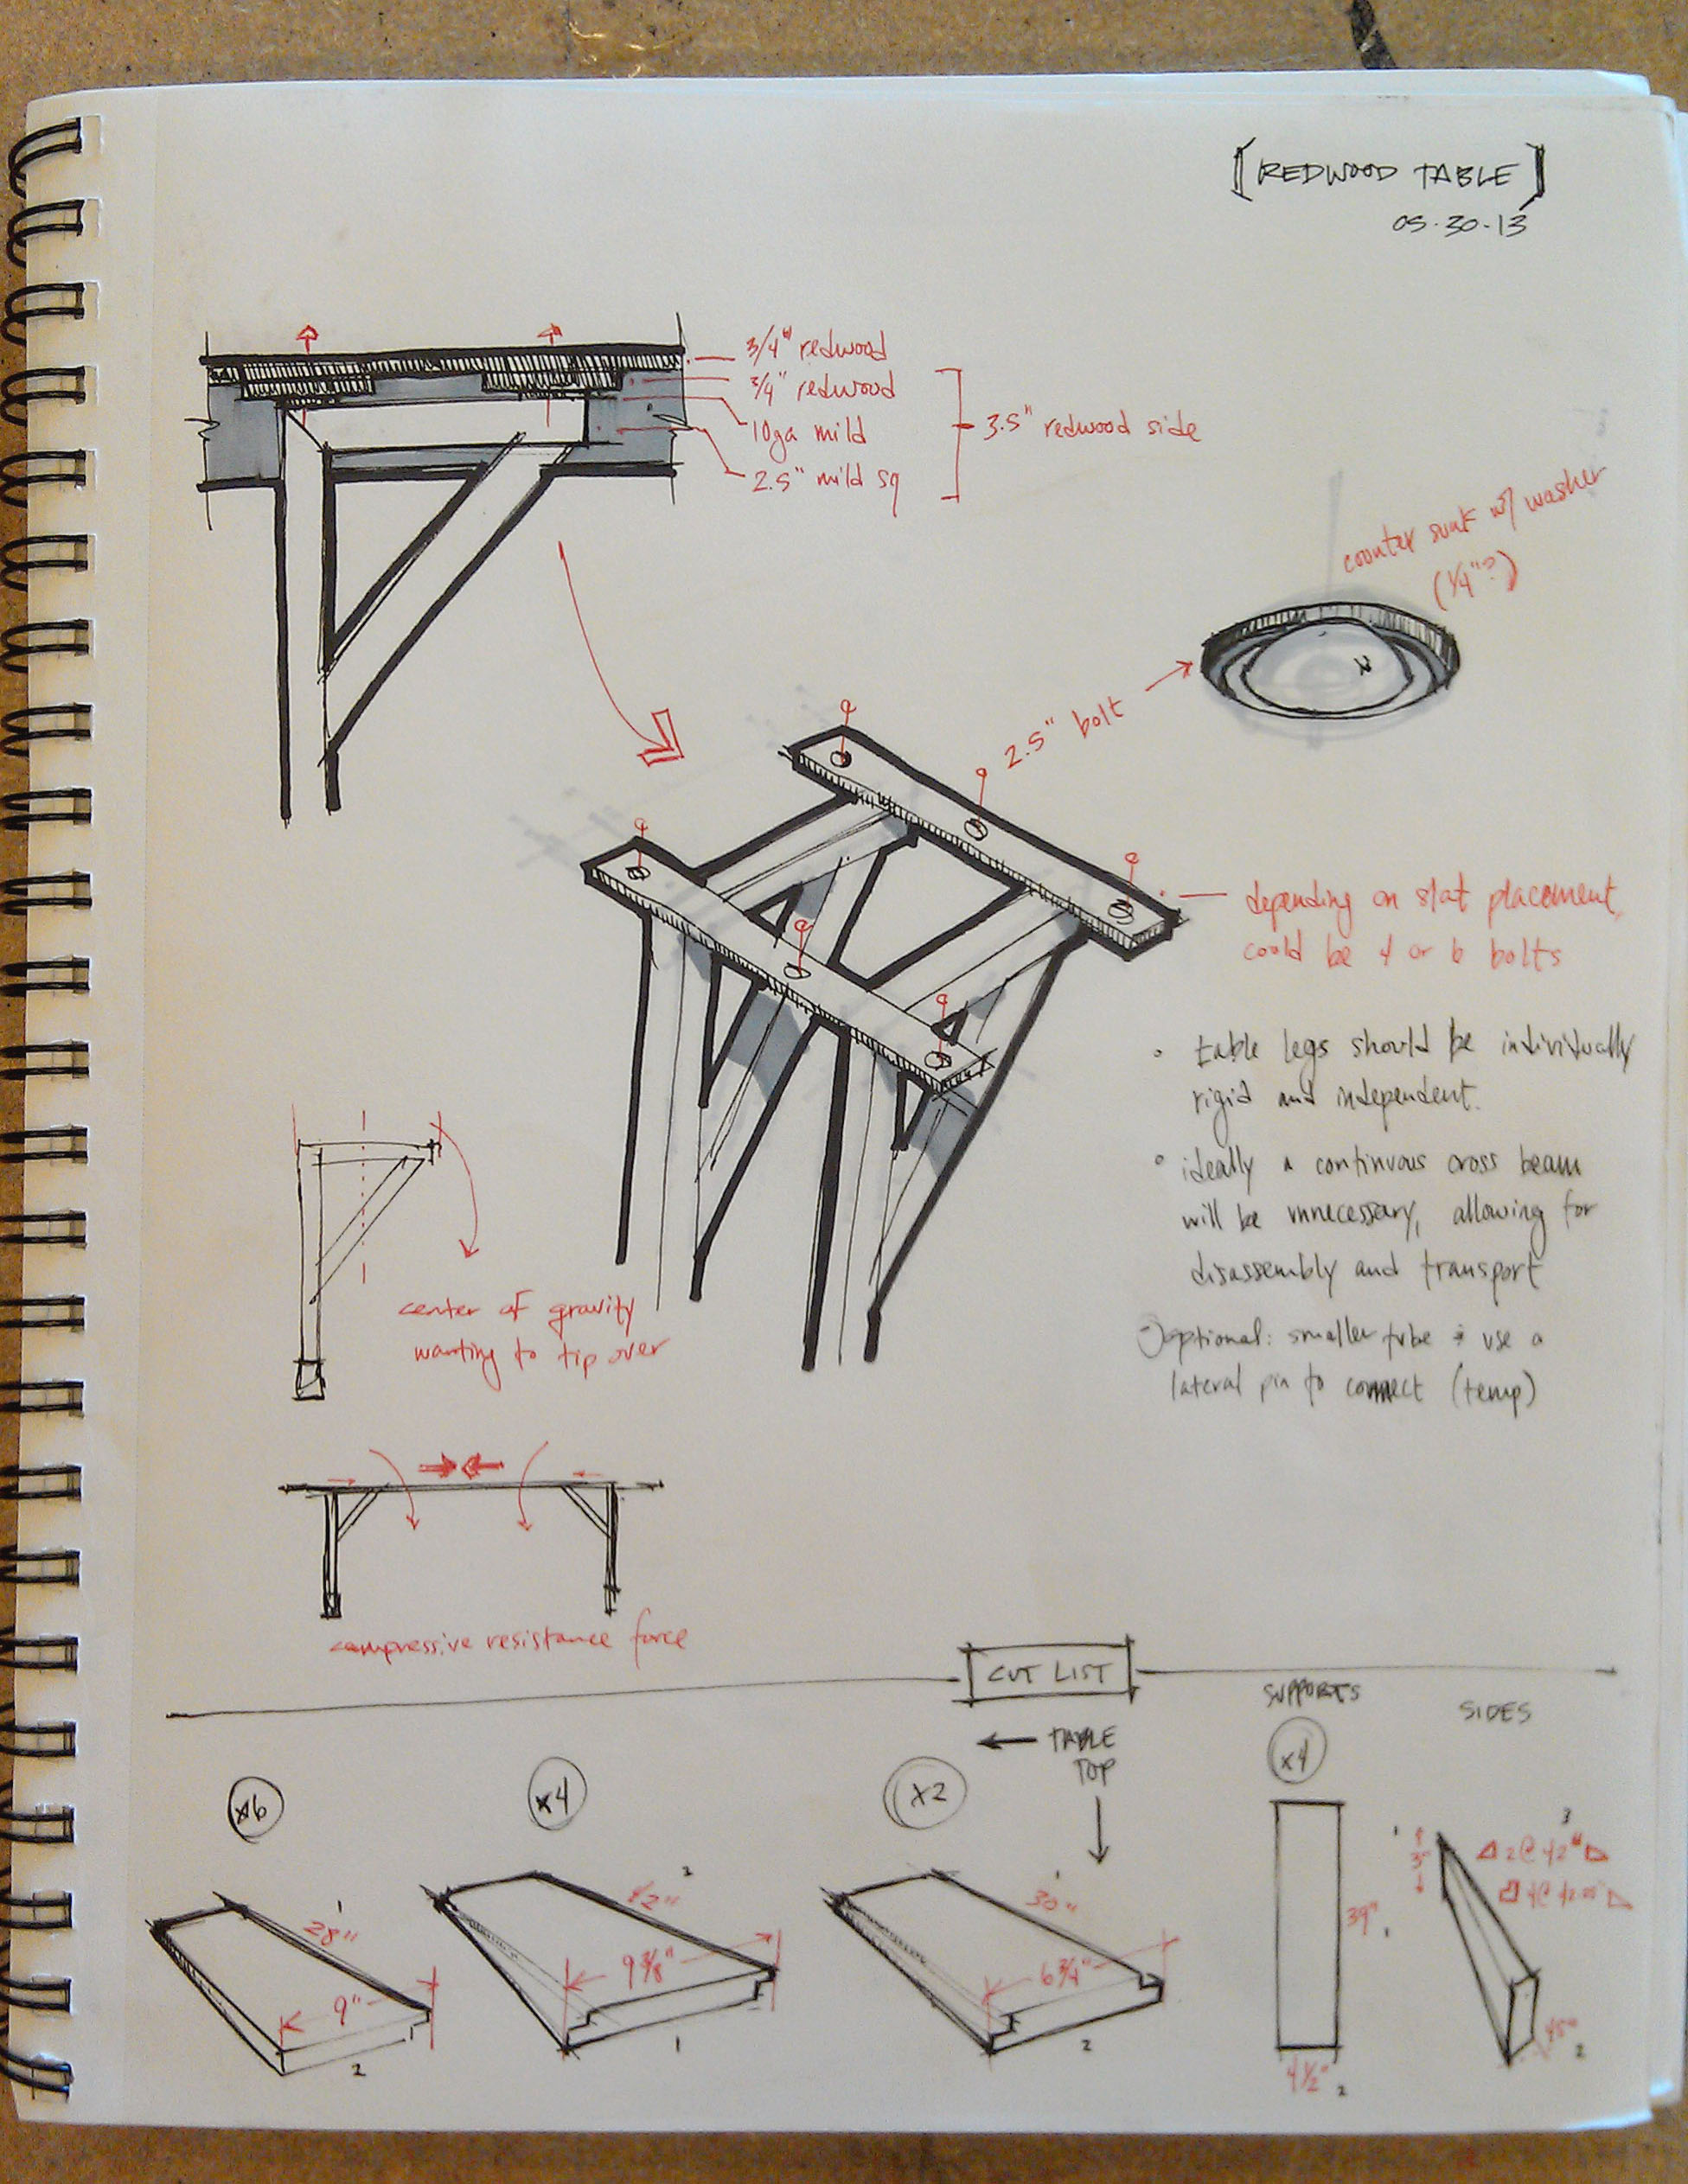 [REDWOOD TABLE]
05.30.13
3/4" redwood
3/4" redwood
10ga mild
2.5" mild sq
3.5" redwood side
counter sunk w/ washer
(1/4"?)
2.5" bolt
depending on slat placement,
could be 4 or 6 bolts
• table legs should be individually
rigid and independent.
• ideally a continuous cross beam
will be unnecessary, allowing for
disassembly and transport
optional: smaller tube + use a
lateral pin to connect (temp)
center of gravity
wanting to tip over
compressive resistance force
CUT LIST
← TABLE
TOP
SUPPORTS
SIDES
x6
x4
x2
x4
1
28"
9"
2
2
42"
9 3/8"
1
1
30"
6 3/4"
2
39"
1
4 1/2"
2
1
3"
3
2@ 42"
45°
2